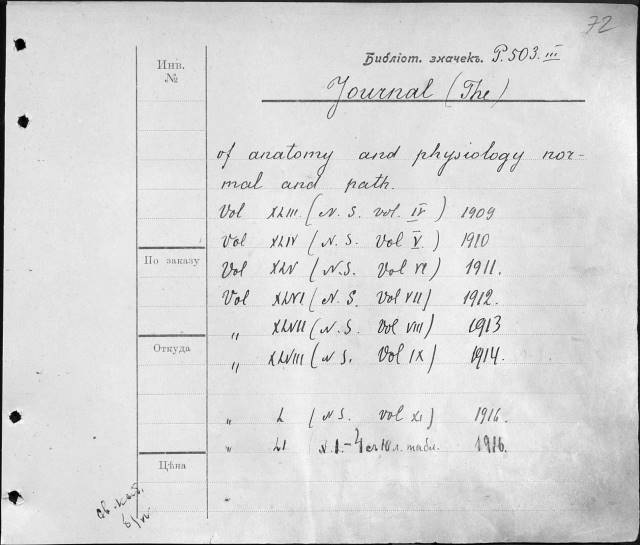 72
Инв.
№
Библіот. значекъ. P. 503. III
Journal (The)
of anatomy and physiology nor-
mal and path.
Vol XLIII (N. S. vol. IV) 1909
Vol XLIV (N. S. Vol V.) 1910
По заказу
Vol XLV (N.S. Vol VI) 1911.
Vol XLVI (N. S. Vol VII) 1912.
„ XLVII (N. S. Vol VIII) 1913
Откуда
„ XLVIII (N S. Vol IX) 1914.
„ L (N S. vol XI) 1916.
„ LI N. 1.-4 съ 10 л. табл. 1916.
Цѣна
„